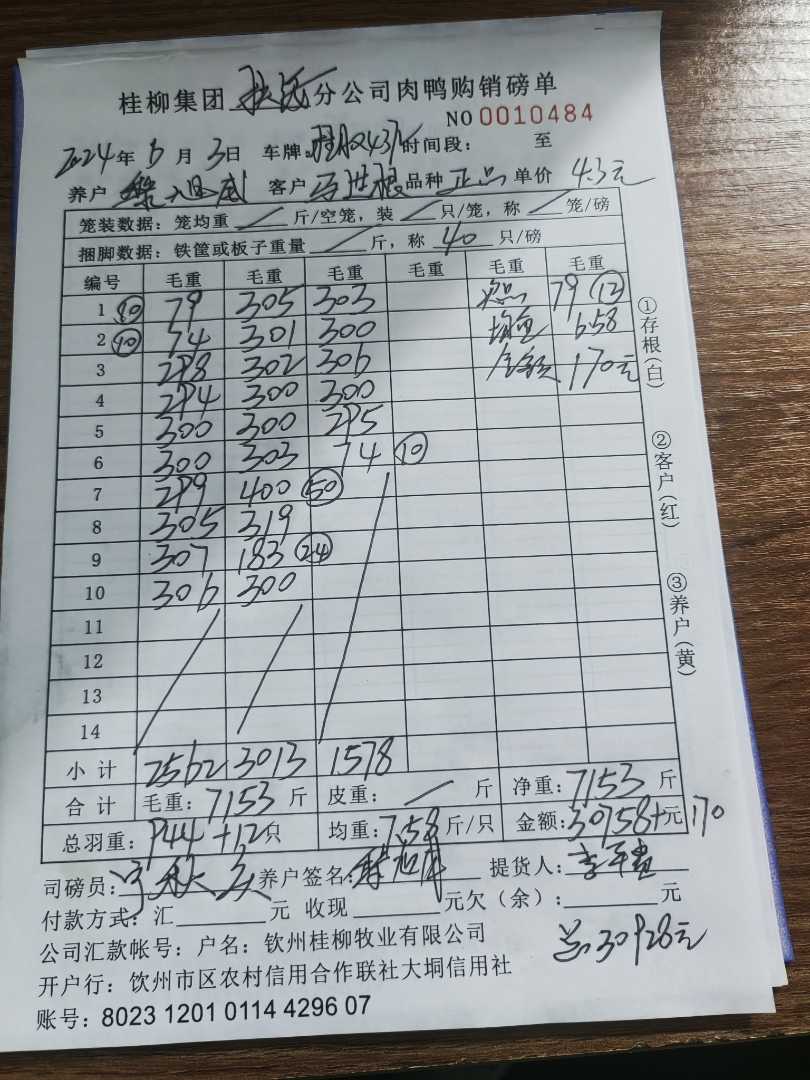 桂柳集团 分公司肉鸭购销磅单
NO 0010484
2024年 6月 3日 车牌: 时间段: 至
养户 客户 品种 正品 单价 4.3元
笼装数据:笼均重 / 斤/空笼,装 / 只/笼,称 / 笼/磅
捆脚数据:铁筐或板子重量 / 斤,称 40 只/磅
编号 毛重 毛重 毛重 毛重 毛重 毛重
1 ⑩ 79 305 303 79 ⑫
2 ⑩ 74 301 300 均重 6.58
3 298 302 306 金额 170元
4 294 300 300
5 300 300 295
6 300 303 74 ⑩
7 299 400 ㊿
8 305 319
9 307 183 ㉔
10 306 300
11
12
13
14
小计 2562 3013 1578
合计 毛重: 7153 斤 皮重: / 斤 净重: 7153 斤
总羽重: 944+12只 均重: 7.58 斤/只 金额: 30758+元 170
司磅员: 养户签名: 提货人:
付款方式:汇 元 收现 元欠(余): 元
总30928元
公司汇款帐号:户名:钦州桂柳牧业有限公司
开户行:饮州市区农村信用合作联社大垌信用社
账号:8023 1201 0114 4296 07
①存根(白)
②客户(红)
③养户(黄)